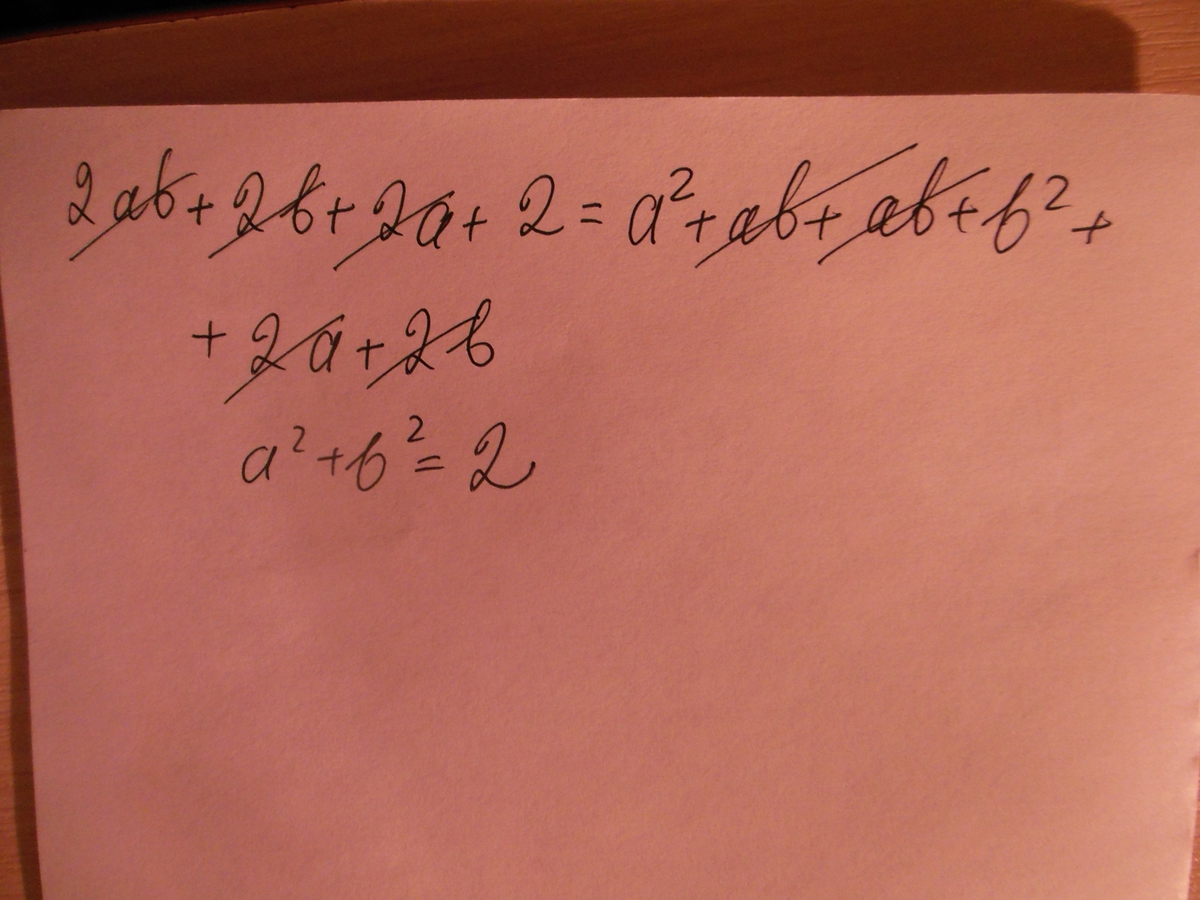 2ab + 2b + 2a + 2 = a² + ab + ab + b² +
+ 2a + 2b
a² + b² = 2